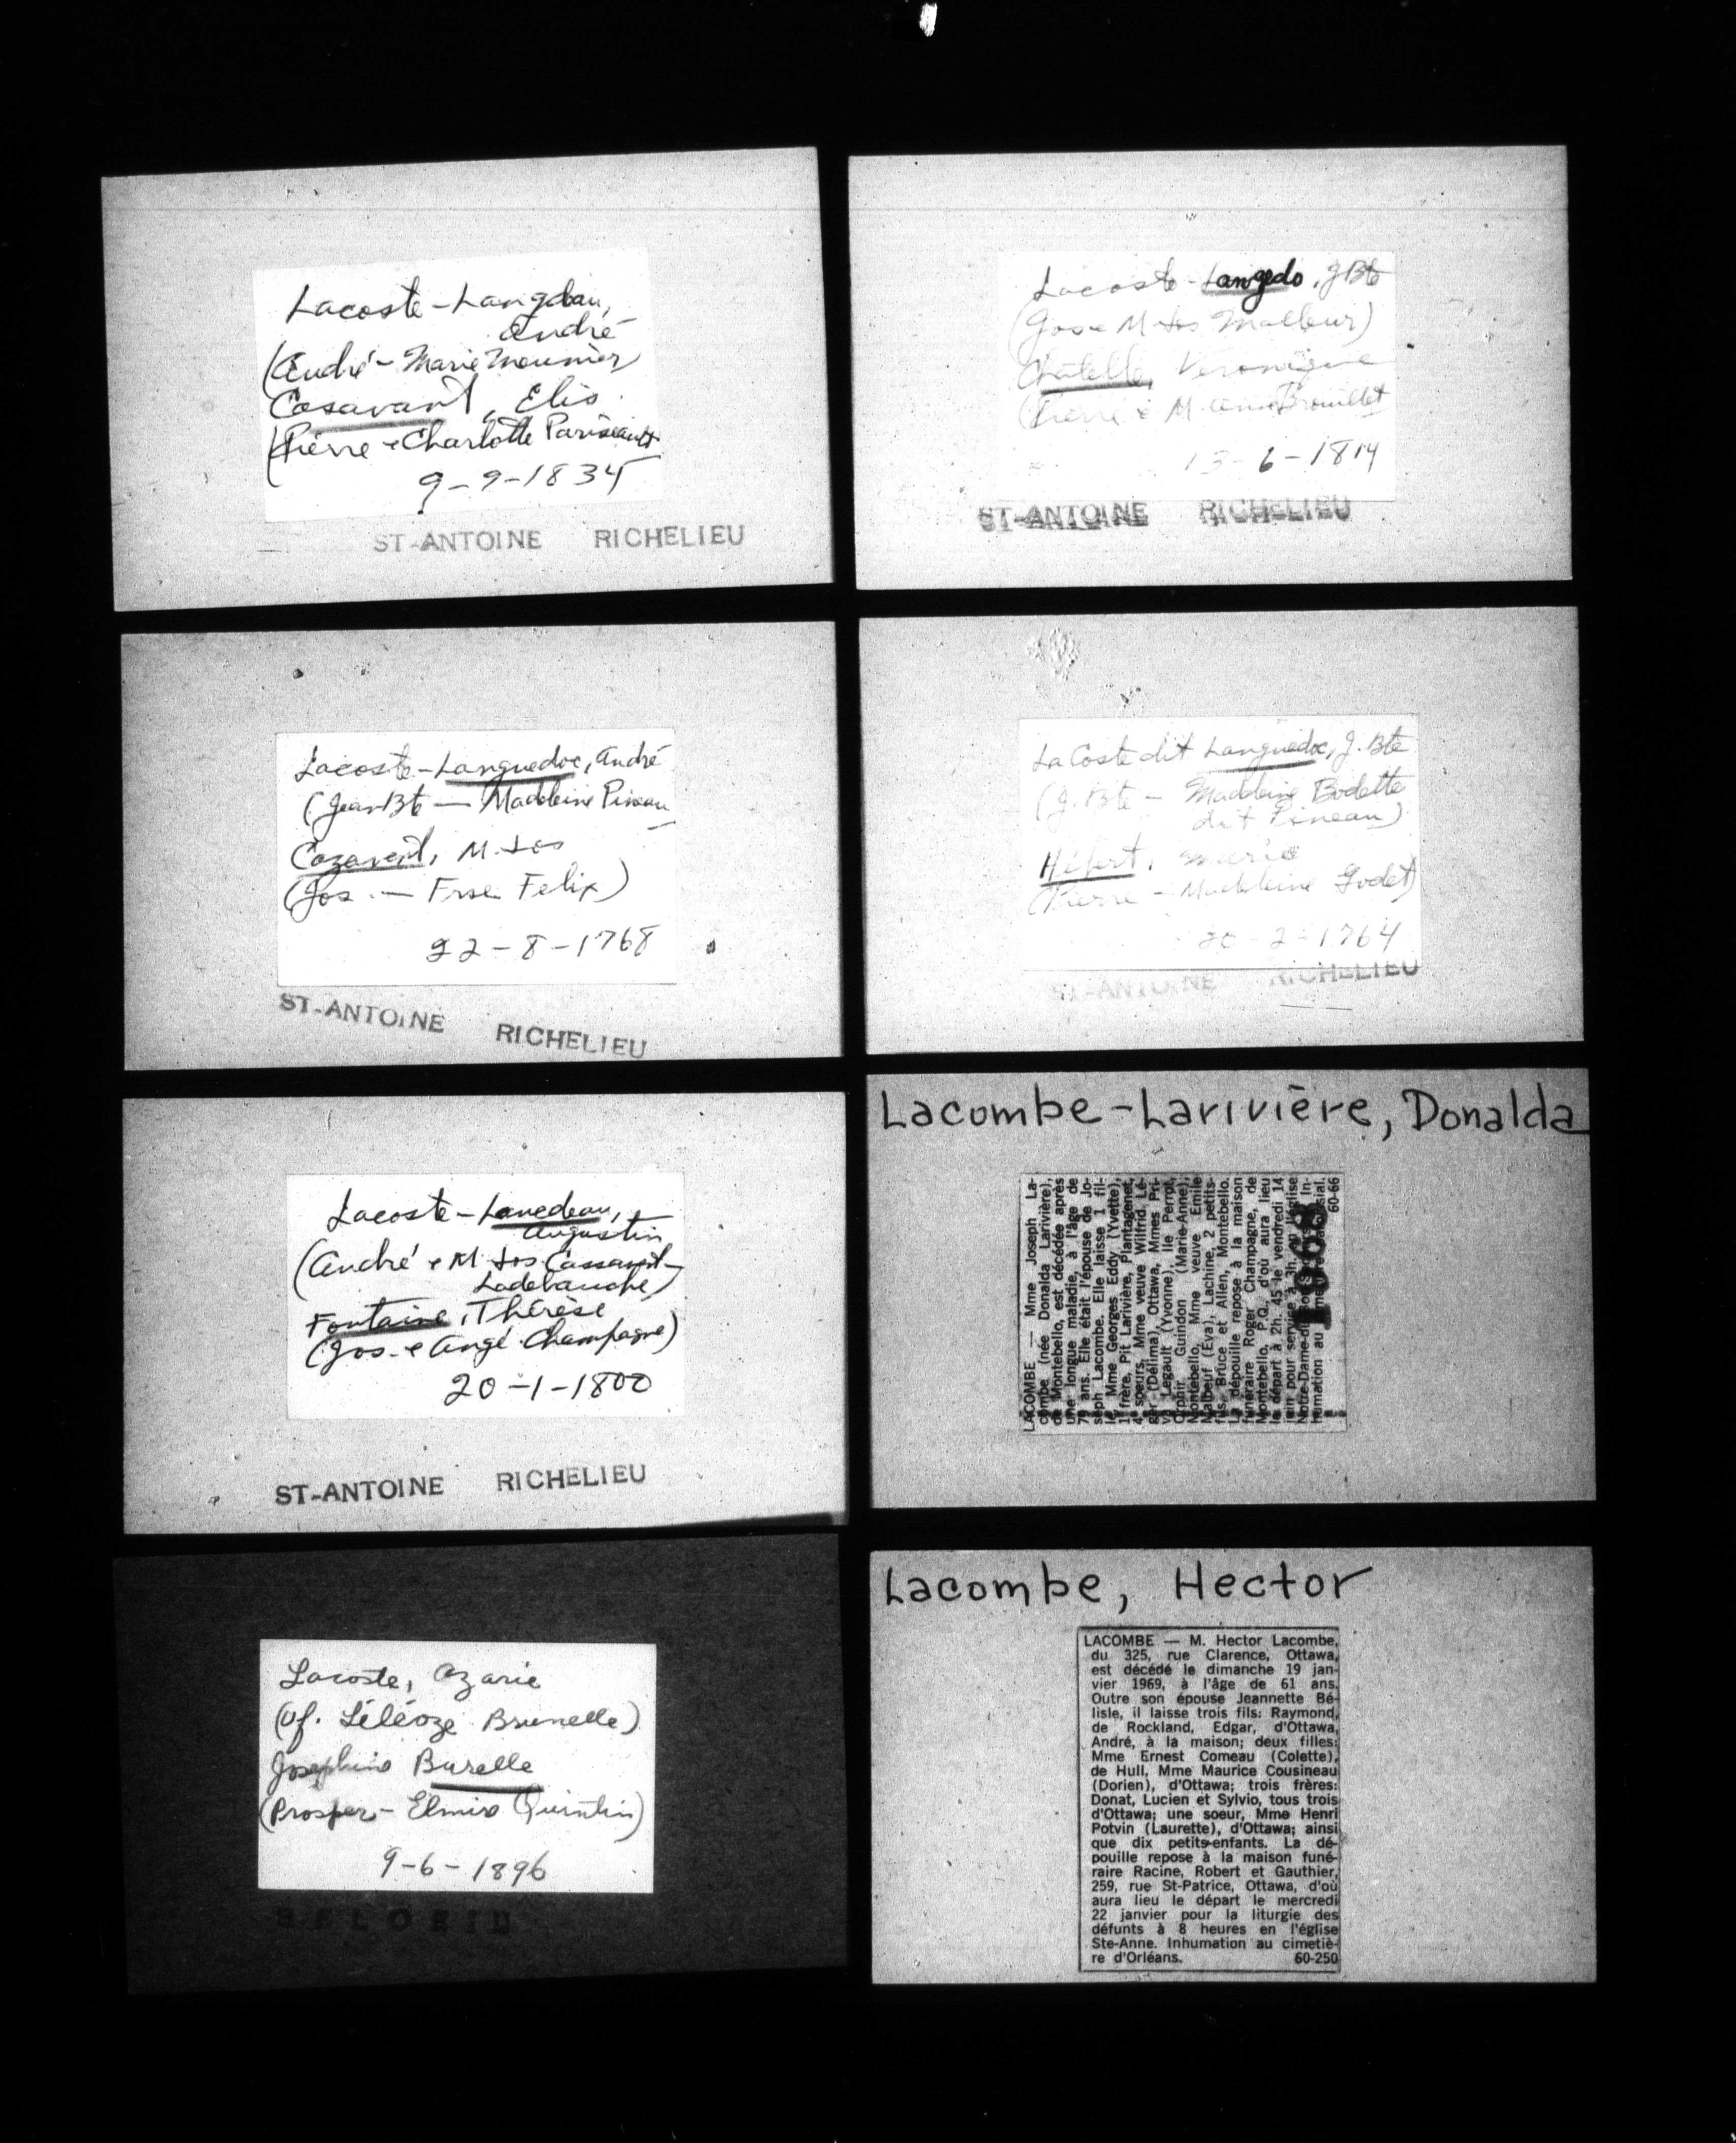 Lacoste-Langdeau,
André
(André - Marie Meunier)
Casavant, Elis.
(Pierre - Charlotte Pariseault
9-9-1834
ST-ANTOINE RICHELIEU
Lacoste-Langedo, J Bte
(Jos - M-Les Malleur)
Chatelle, Veronique
(Pierre & M. Anne Brouillet
6-1814
ST-ANTOINE RICHELIEU
Lacoste-Languedoc, André
(Jean Bte — Madeleine Pineau
Cazavent, M.
(Jos. — Frse Felix)
22-8-1768
ST-ANTOINE RICHELIEU
LaCoste dit Languedoc, J. Bte
(J. Bte - Madeleine Bodette
dit Pineau)
Hébert, Marie
(Pierre - Madeleine Godet)
20-2-1764
ST-ANTOINE RICHELIEU
Lacoste-Lanedeau,
Augustin
(André & M. Jos Cassavant-
Ladebauche)
Fontaine, Thérèse
(Jos. & Angé. Champagne)
20-1-1800
ST-ANTOINE RICHELIEU
Lacombe-Larivière, Donalda
LACOMBE — Mme Joseph La-
combe (née Donalda Larivière),
de Montebello, est décédée après
une longue maladie, à l'âge de
79 ans. Elle était l'épouse de Jo-
seph Lacombe. Elle laisse 1 fil-
le Mme Georges Eddy (Yvette),
1 frère, Pit Larivière, Plantagenet,
4 soeurs, Mme veuve Wilfrid Lé-
ger (Délima), Ottawa, Mmes Pri-
va Legault (Yvonne), Ile Perrot,
Orphir Guindon (Marie-Anne),
Montebello, Mme veuve Emile
Malbeuf (Eva), Lachine, 2 petits-
fils, Bruce et Allen, Montebello.
La dépouille repose à la maison
funéraire Roger Champagne, de
Montebello, P.Q. d'où aura lieu
le départ à 2h. 45 le vendredi 14
juin pour service à 3h. en l'église
humation au
60-66
1968
Lacoste, Azarie
(Vf. Léléoze Brunelle)
Josephine Burelle
(Prosper - Elmire Quintin)
9-6-1896
BELOEIL
Lacombe, Hector
LACOMBE — M. Hector Lacombe,
du 325, rue Clarence, Ottawa,
est décédé le dimanche 19 jan-
vier 1969, à l'âge de 61 ans.
Outre son épouse Jeannette Bé-
lisle, il laisse trois fils: Raymond,
de Rockland, Edgar, d'Ottawa,
André, à la maison; deux filles:
Mme Ernest Comeau (Colette),
de Hull, Mme Maurice Cousineau
(Dorien), d'Ottawa; trois frères:
Donat, Lucien et Sylvio, tous trois
d'Ottawa; une soeur, Mme Henri
Potvin (Laurette), d'Ottawa; ainsi
que dix petits-enfants. La dé-
pouille repose à la maison funé-
raire Racine, Robert et Gauthier,
259, rue St-Patrice, Ottawa, d'où
aura lieu le départ le mercredi
22 janvier pour la liturgie des
défunts à 8 heures en l'église
Ste-Anne. Inhumation au cimetiè-
re d'Orléans. 60-250